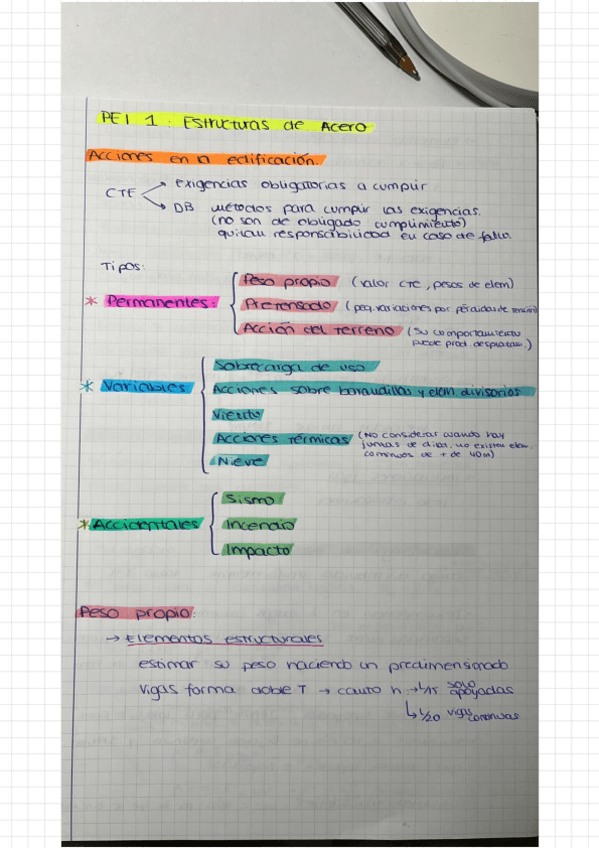 PEI 1: Estructuras de Acero
Acciones en la edificación.
CTE
exigencias obligatorias a cumplir
DB métodos para cumplir las exigencias.
(no son de obligado cumplimiento)
quitan responsabilidad en caso de fallo.
Tipos:
* Permanentes:
Peso propio (valor CTE, pesos de elem)
Pretensado (peq. variaciones por pérdidas de tensión)
Acción del terreno (su comportamiento
puede prod. desplazam.)
* Variables
Sobrecarga de uso
Acciones sobre barandillas y elem. divisorios
Viento
Acciones térmicas (NO considerar cuando hay
juntas de dilat. no existen elem.
continuos de + de 40m)
Nieve
* Accidentales
Sismo
Incendio
Impacto
Peso propio:
→ Elementos estructurales
estimar su peso haciendo un predimensionado
vigas forma doble T → canto h → 1/15 solo apoyadas
↳ 1/20 vigas continuas